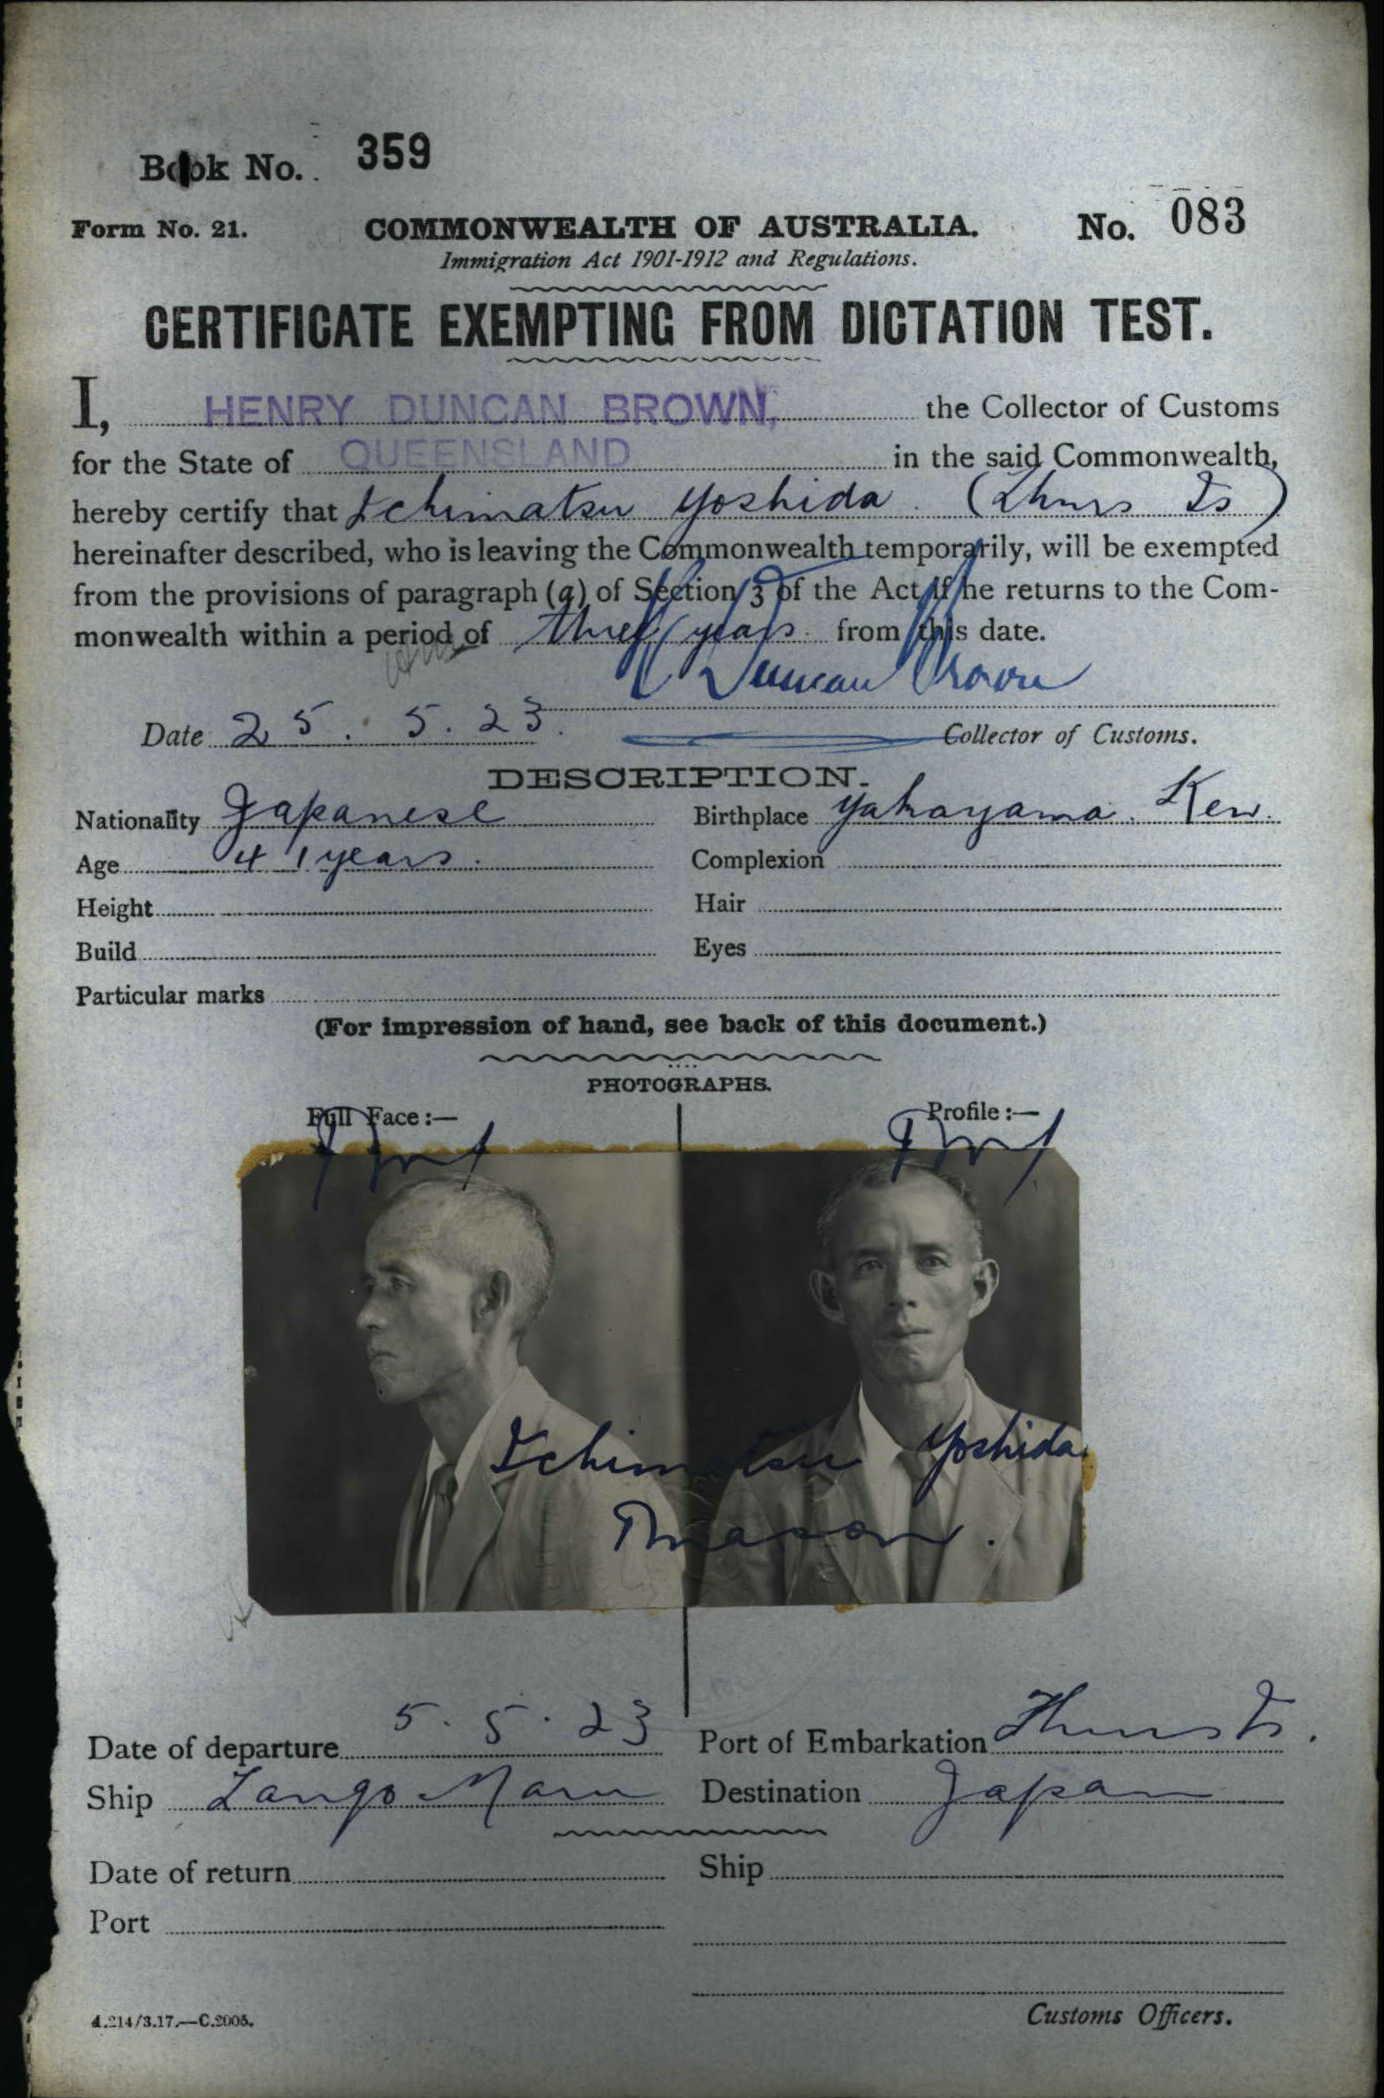 Book No. 359
Form No. 21. COMMONWEALTH OF AUSTRALIA. No. 083
Immigration Act 1901-1912 and Regulations.
CERTIFICATE EXEMPTING FROM DICTATION TEST.
I, HENRY DUNCAN BROWN, the Collector of Customs
for the State of QUEENSLAND in the said Commonwealth,
hereby certify that Ichimatsu Yoshida. (Thurs Is)
hereinafter described, who is leaving the Commonwealth temporarily, will be exempted
from the provisions of paragraph (a) of Section 3 of the Act if he returns to the Com-
monwealth within a period of three years from this date.
H Duncan Brown
Date 25. 5. 23. Collector of Customs.
DESCRIPTION.
Nationality Japanese Birthplace Yakayama. Ken.
Age 41 years. Complexion
Height Hair
Build Eyes
Particular marks
(For impression of hand, see back of this document.)
PHOTOGRAPHS.
Full Face:— Profile:—
Ichimatsu Yoshida
Date of departure 5. 5. 23 Port of Embarkation Thurs Is.
Ship Tango Maru Destination Japan
Date of return Ship
Port
A.214/3.17.—C.2005. Customs Officers.